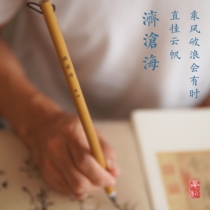 乘风破浪会有时
直挂云帆
濟滄海